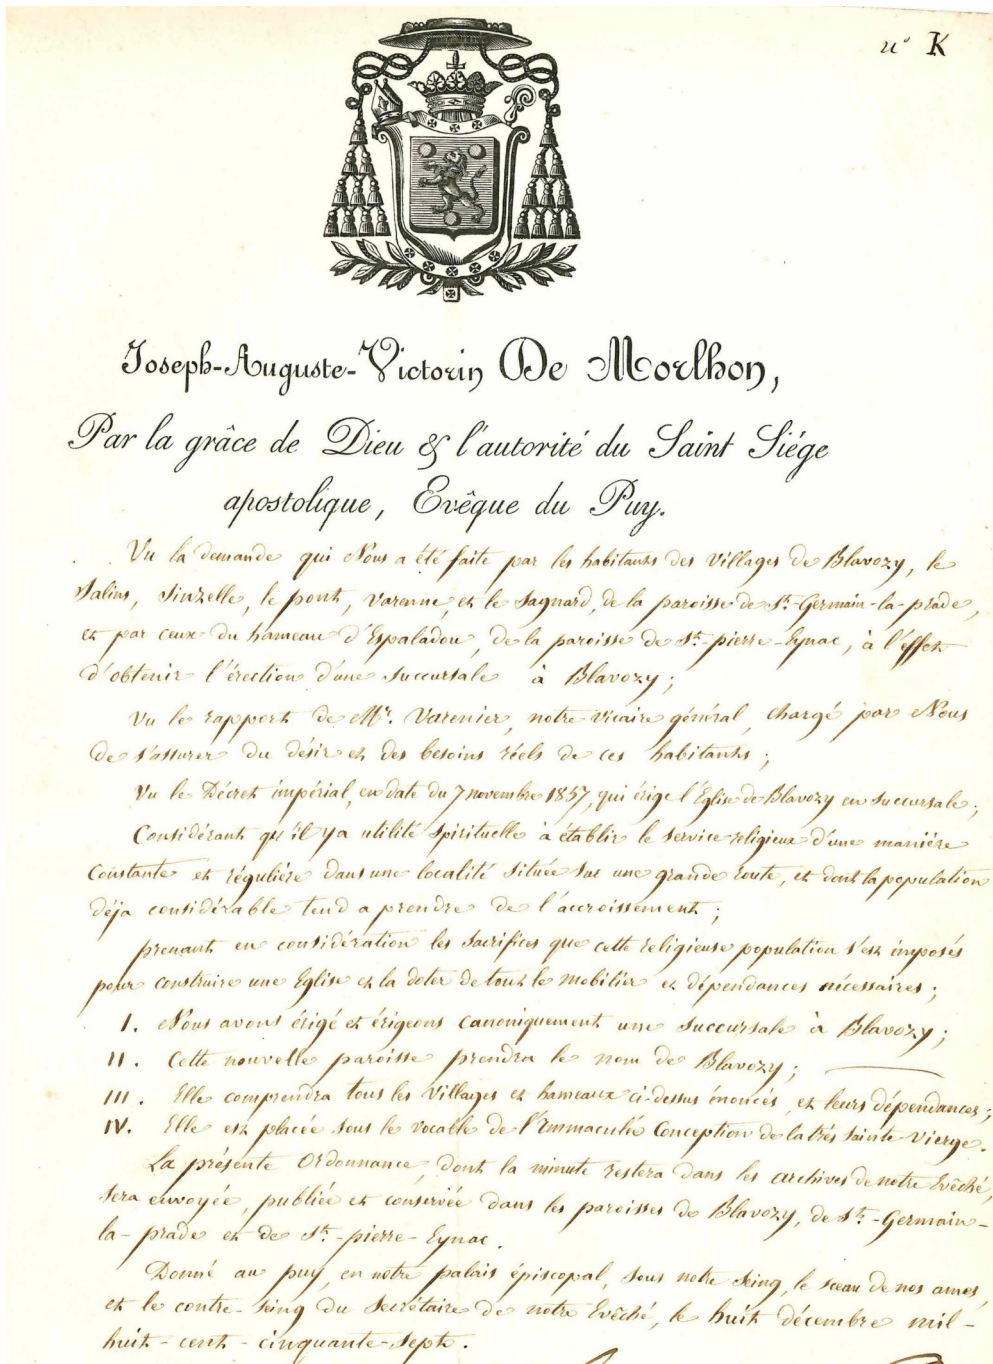 n° K
Joseph-Auguste-Victorin De Morlhon,
Par la grâce de Dieu & l'autorité du Saint Siége
apostolique, Evêque du Puy.
Vu la demande qui Nous a été faite par les habitants des villages de Blavozy, le
Salins, Sinzelle, le pont, Varenne, et le Sagnard, de la paroisse de St-Germain-la-prade,
et par ceux du hameau d'Espaladou, de la paroisse de St-pierre-Eynac, à l'effet
d'obtenir l'érection d'une succursale à Blavozy;
Vu le rapport de Mr. Varenier, notre vicaire général, chargé par Nous
de s'assurer du désir et des besoins réels de ces habitants;
Vu le Décret impérial, en date du 7 novembre 1857, qui érige l'Eglise de Blavozy en succursale;
Considérant qu'il y a utilité spirituelle à établir le service religieux d'une manière
constante et régulière dans une localité située sur une grande route, et dont la population
déja considérable tend a prendre de l'accroissement;
prenant en considération les sacrifices que cette religieuse population s'est imposés
pour construire une Eglise et la doter de tout le mobilier et dépendances nécessaires;
I. Nous avons érigé et érigeons canoniquement une succursale à Blavozy;
II. Cette nouvelle paroisse prendra le nom de Blavozy;
III. Elle comprendra tous les villages et hameaux ci-dessus énoncés, et leurs dépendances;
IV. Elle est placée sous le vocable de l'Immaculée Conception de la très sainte-Vierge.
La présente Ordonnance, dont la minute restera dans les archives de notre Evêché,
sera envoyée, publiée et conservée dans les paroisses de Blavozy, de St-Germain-
la-prade et de St-pierre-Eynac.
Donné au puy, en notre palais épiscopal, sous notre seing, le sceau de nos armes,
et le contre-seing du Secrétaire de notre Evêché, le huit décembre mil-
huit-cent-cinquante-sept.